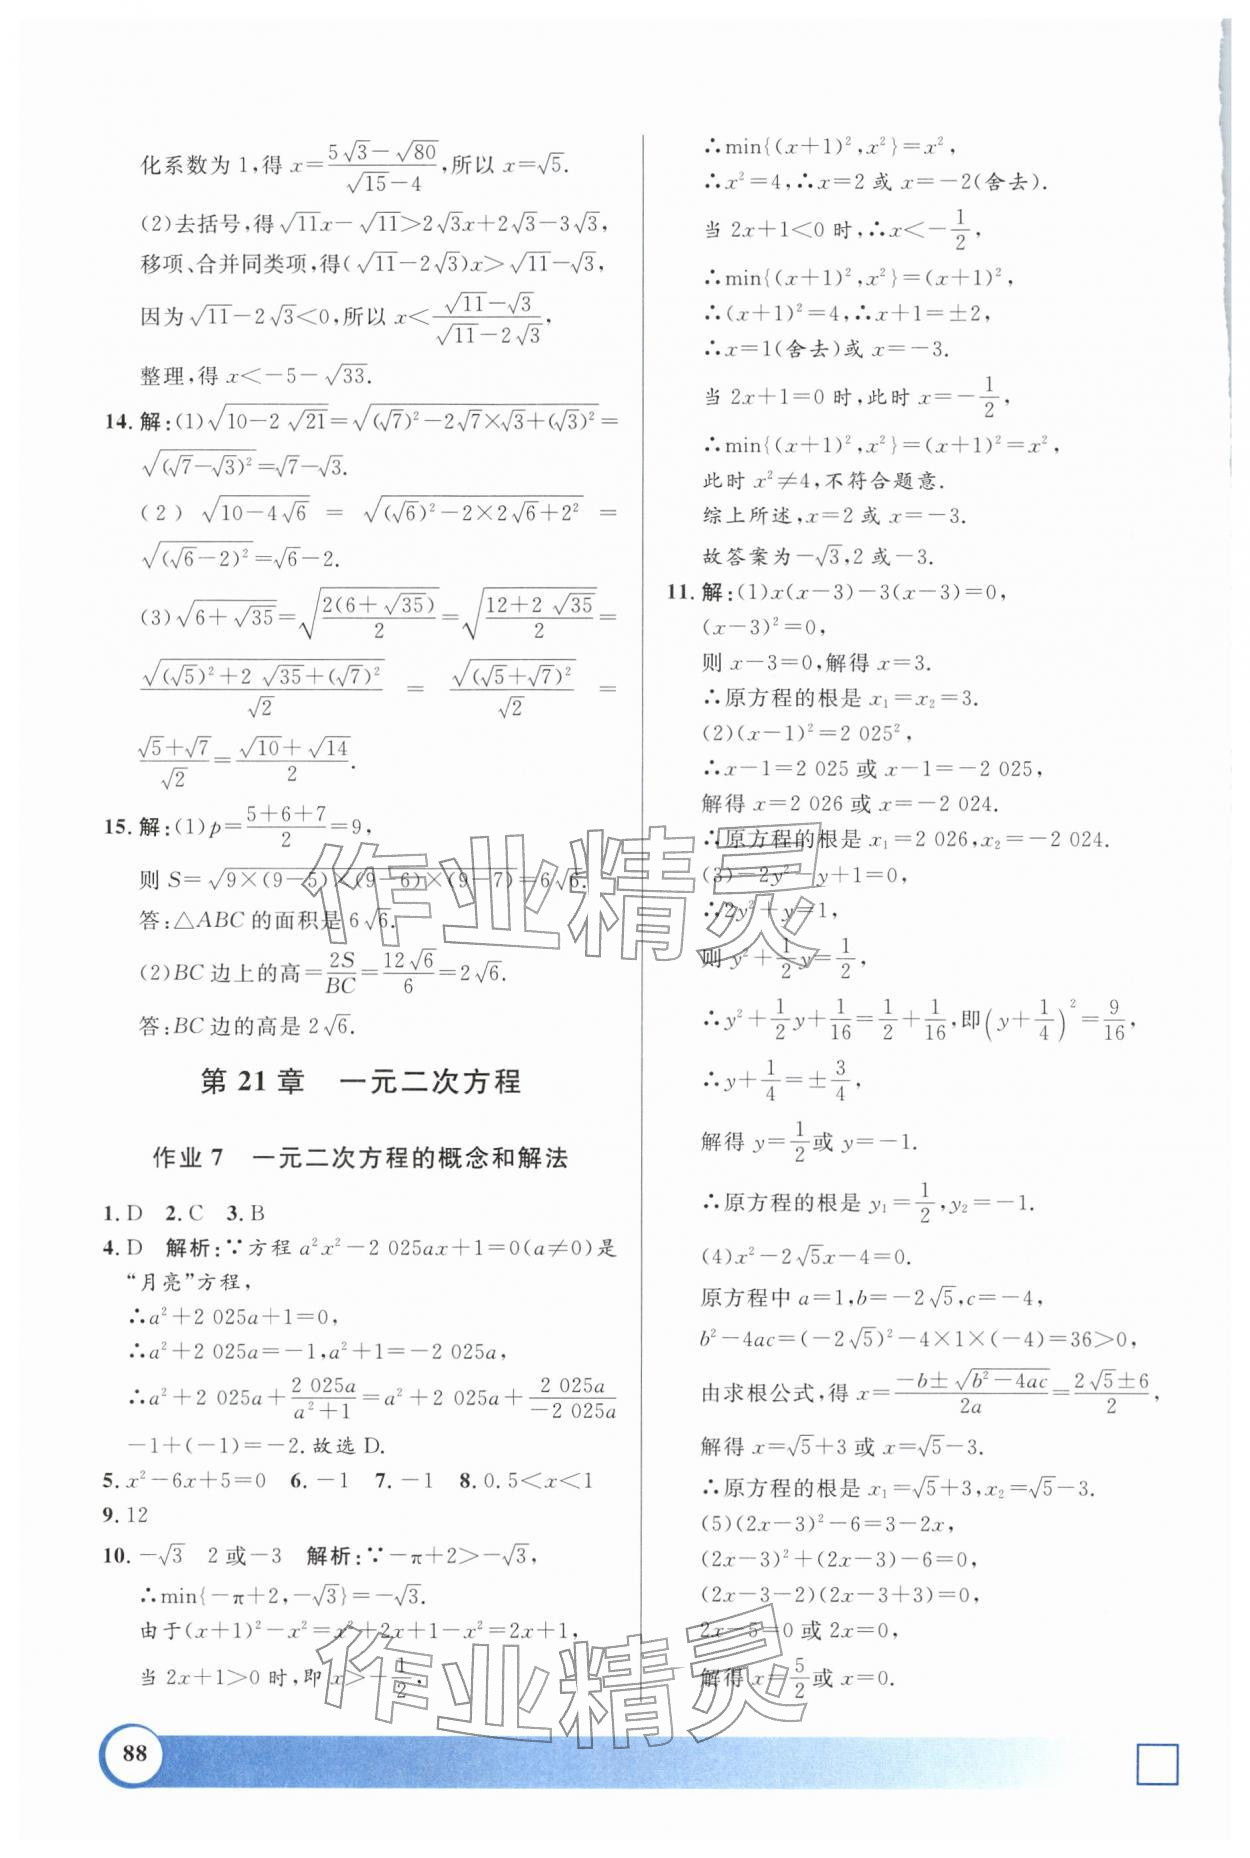 化系数为1,得 x=(5√3-√80)/(√15-4),所以 x=√5.
(2)去括号,得√11x-√11>2√3x+2√3-3√3,
移项、合并同类项,得(√11-2√3)x>√11-√3,
因为√11-2√3<0,所以 x<(√11-√3)/(√11-2√3),
整理,得 x<-5-√33.
14.解:(1)√(10-2√21)=√((√7)²-2√7×√3+(√3)²)=
√((√7-√3)²)=√7-√3.
(2)√(10-4√6)=√((√6)²-2×2√6+2²)=
√((√6-2)²)=√6-2.
(3)√(6+√35)=√(2(6+√35)/2)=√((12+2√35)/2)=
√((√5)²+2√35+(√7)²)/√2=√((√5+√7)²)/√2=
(√5+√7)/√2=(√10+√14)/2.
15.解:(1)p=(5+6+7)/2=9,
则 S=√(9×(9-5)×(9-6)×(9-7))=6√6.
答:△ABC的面积是6√6.
(2)BC边上的高=2S/BC=12√6/6=2√6.
答:BC边的高是2√6.
第21章 一元二次方程
作业7 一元二次方程的概念和解法
1.D 2.C 3.B
4.D 解析:∵方程a²x²-2 025ax+1=0(a≠0)是
“月亮”方程,
∴a²+2 025a+1=0,
∴a²+2 025a=-1,a²+1=-2 025a,
∴a²+2 025a+2 025a/(a²+1)=a²+2 025a+2 025a/(-2 025a)=
-1+(-1)=-2.故选D.
5.x²-6x+5=0 6.-1 7.-1 8.0.5<x<1
9.12
10.-√3 2或-3 解析:∵-π+2>-√3,
∴min{-π+2,-√3}=-√3.
由于(x+1)²-x²=x²+2x+1-x²=2x+1,
当2x+1>0时,即x>-1/2,
∴min{(x+1)²,x²}=x²,
∴x²=4,∴x=2或x=-2(舍去).
当2x+1<0时,∴x<-1/2,
∴min{(x+1)²,x²}=(x+1)²,
∴(x+1)²=4,∴x+1=±2,
∴x=1(舍去)或x=-3.
当2x+1=0时,此时x=-1/2,
∴min{(x+1)²,x²}=(x+1)²=x²,
此时x²≠4,不符合题意.
综上所述,x=2或x=-3.
故答案为-√3,2或-3.
11.解:(1)x(x-3)-3(x-3)=0,
(x-3)²=0,
则x-3=0,解得x=3.
∴原方程的根是x₁=x₂=3.
(2)(x-1)²=2 025²,
∴x-1=2 025或x-1=-2 025,
解得x=2 026或x=-2 024.
∴原方程的根是x₁=2 026,x₂=-2 024.
(3)-2y²-y+1=0,
∴2y²+y=1,
则y²+1/2y=1/2,
∴y²+1/2y+1/16=1/2+1/16,即(y+1/4)²=9/16,
∴y+1/4=±3/4,
解得y=1/2或y=-1.
∴原方程的根是y₁=1/2,y₂=-1.
(4)x²-2√5x-4=0.
原方程中a=1,b=-2√5,c=-4,
b²-4ac=(-2√5)²-4×1×(-4)=36>0,
由求根公式,得x=(-b±√(b²-4ac))/2a=(2√5±6)/2,
解得x=√5+3或x=√5-3.
∴原方程的根是x₁=√5+3,x₂=√5-3.
(5)(2x-3)²-6=3-2x,
(2x-3)²+(2x-3)-6=0,
(2x-3-2)(2x-3+3)=0,
2x-5=0或2x=0,
解得x=5/2或x=0.
作业精灵
作业精灵
88